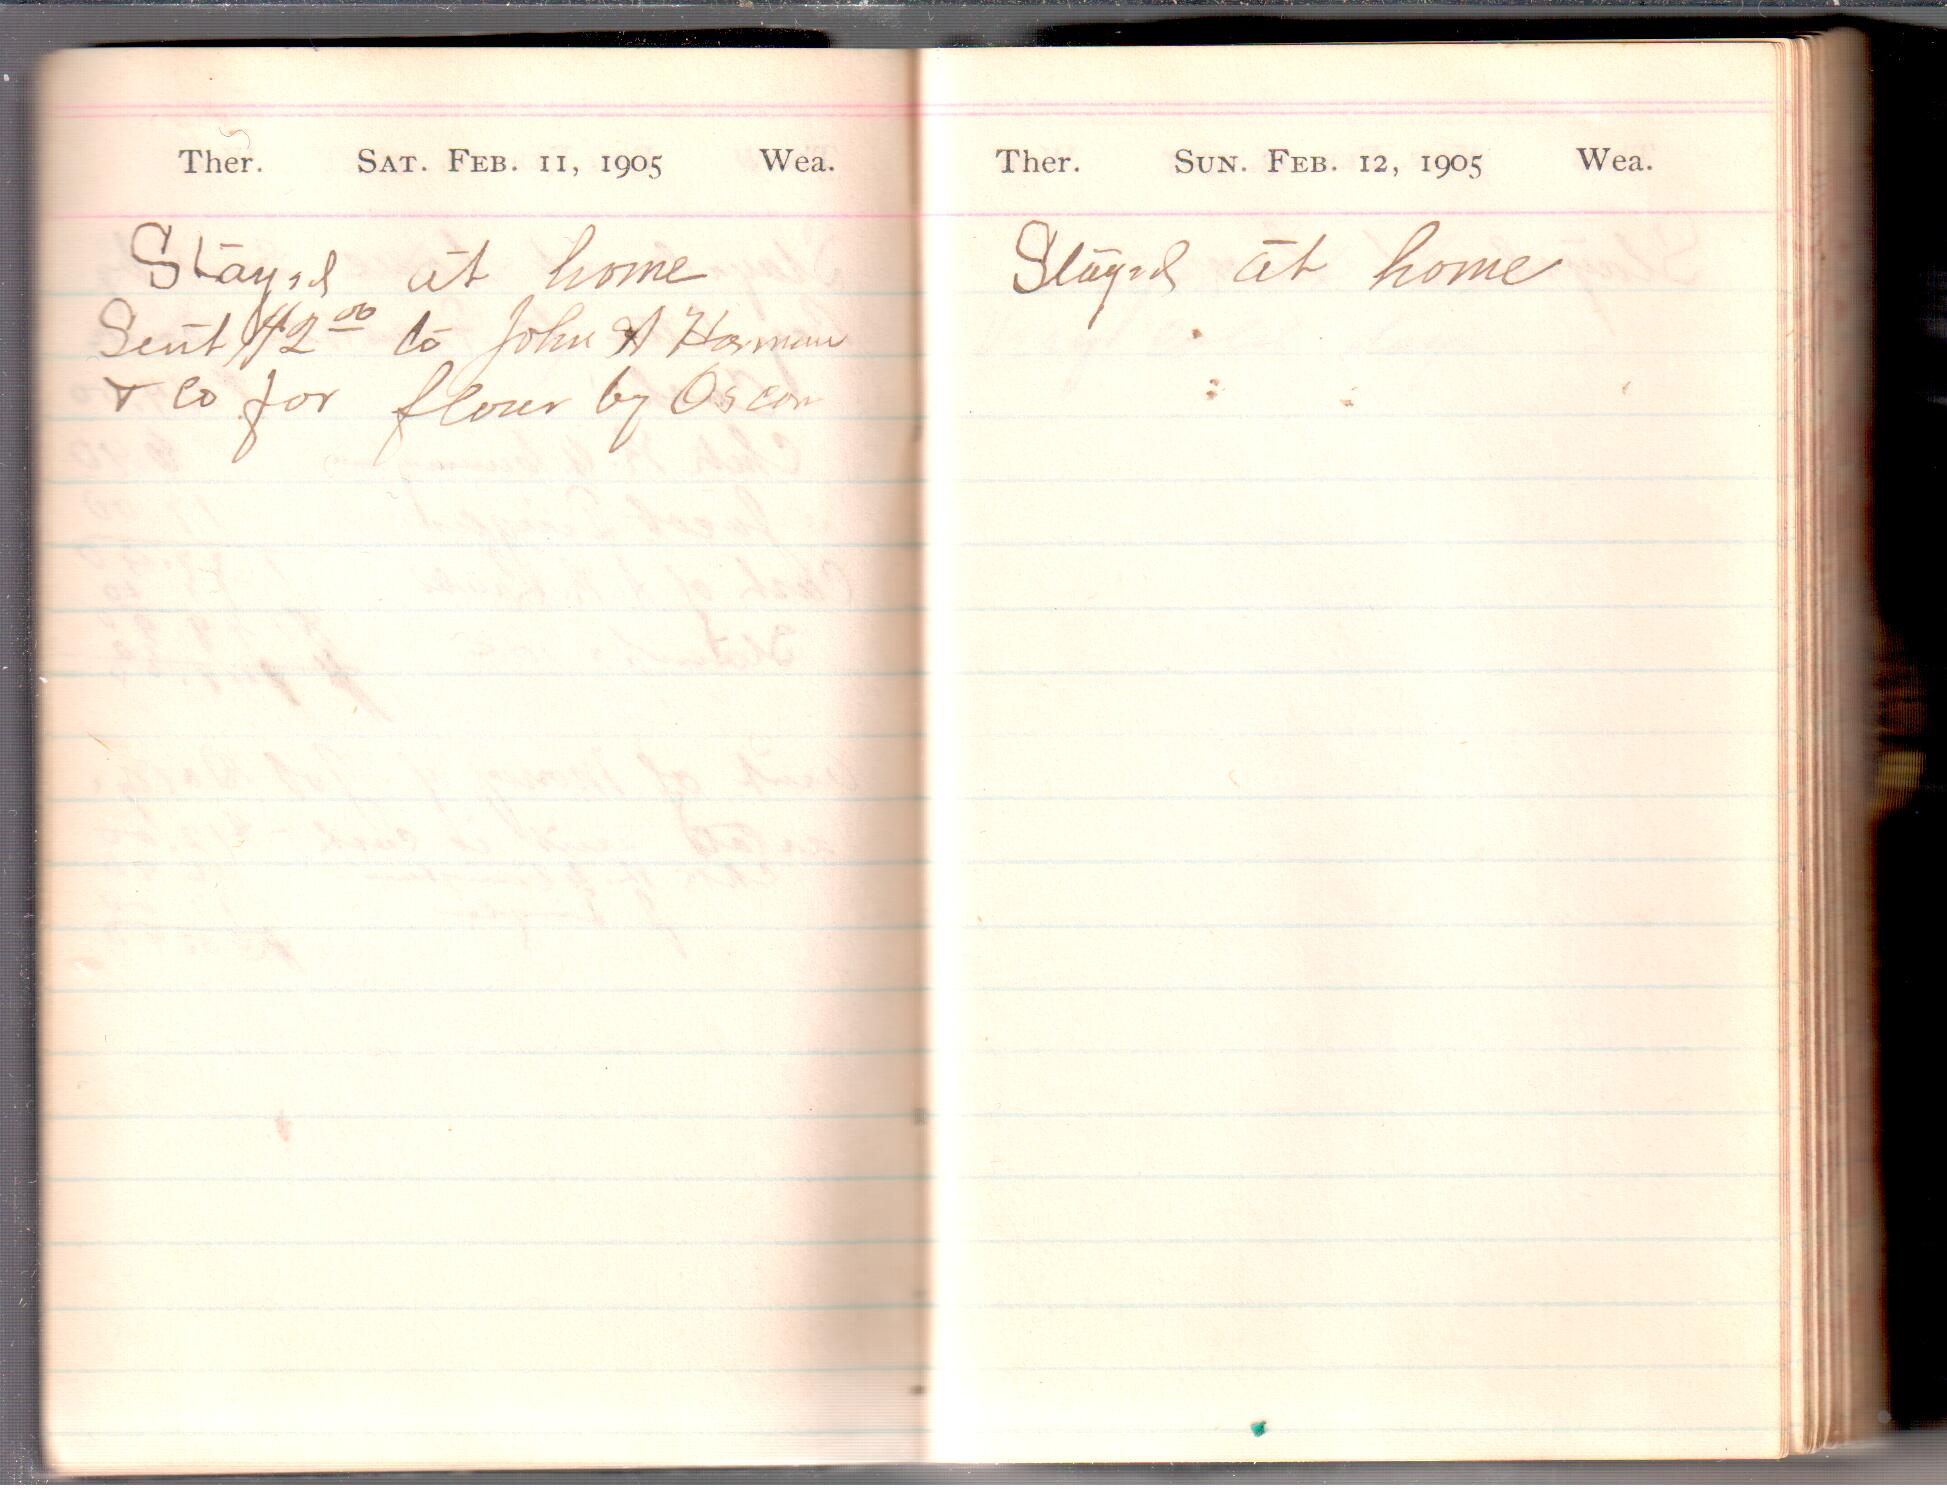 Ther. SAT. FEB. 11, 1905 Wea.
Stayed at home
Sent $42.00 to John A Harman
& Co for flour by Oscar
Ther. SUN. FEB. 12, 1905 Wea.
Stayed at home